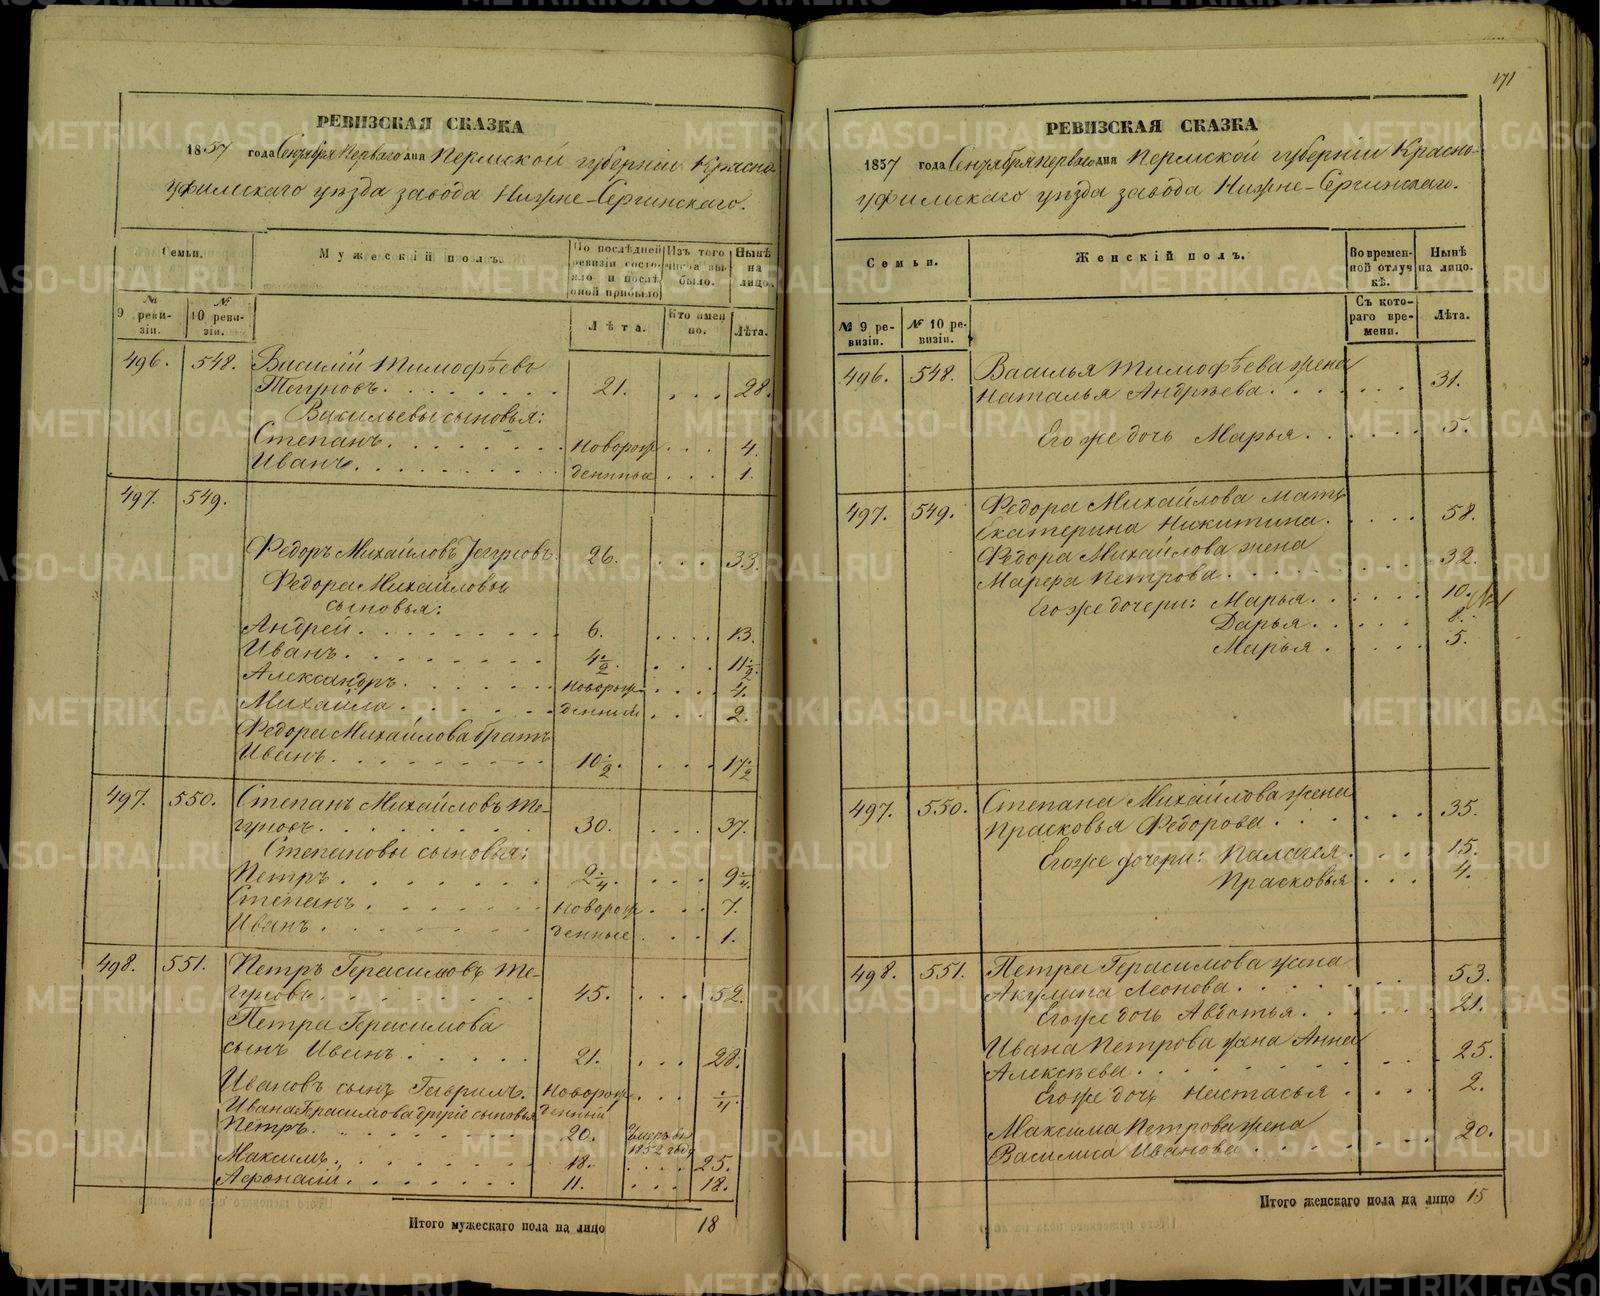 171
РЕВИЗСКАЯ СКАЗКА
1857 года Сентября Перваго дня Пермской губерніи Красно-
уфимскаго уѣзда завода Нижне-Сергинскаго.
Семьи.
Мужескій полъ.
По послѣдней ревизіи состояло и послѣ оной прибыло
Изъ того числа выбыло.
Нынѣ на лицо.
№ 9 ревизіи.
№ 10 ревизіи.
Лѣта.
Кто именно.
Лѣта.
496. 548. Василій Тимофѣевъ
Тегуновъ. 21. 28.
Васильевы сыновья:
Степанъ. новорож 4.
Иванъ. денные 1.
497. 549.
Федоръ Михайловъ Тегуновъ. 26. 33.
Федора Михайловы
сыновья:
Андрей. 6. 13.
Иванъ. 4½. 11½.
Александръ. новорож 4.
Михайла. денный 2.
Федора Михайлова братъ
Иванъ. 10½. 17½
497. 550. Степанъ Михайловъ Те-
гуновъ. 30. 37.
Степановы сыновья:
Петръ. 2¼. 9¼.
Степанъ. новорож 7.
Иванъ. денные 1.
498. 551. Петръ Герасимовъ Те-
гуновъ. 45. 52.
Петра Герасимова
сынъ Иванъ. 21. 28.
Ивановъ сынъ Гаврилъ. Новорож ¼.
Ивана Герасимова другіе сыновья денный
Петръ. 20. Умеръ въ 1852 году
Максимъ. 18. 25.
Афонасій. 11. 18.
Итого мужескаго пола на лицо 18
РЕВИЗСКАЯ СКАЗКА
1857 года Сентября перваго дня Пермской губерніи Красно-
уфимскаго уѣзда завода Нижне-Сергинскаго.
Семьи.
Женскій полъ.
Во временной отлучкѣ.
Нынѣ на лицо.
№ 9 ревизіи.
№ 10 ревизіи.
Съ котораго времени.
Лѣта.
496. 548. Василья Тимофѣева жена
Наталья Андрѣева. 31.
Его же дочь Марья. 5.
497. 549. Федора Михайлова мать
Екатерина Никитина. 58.
Федора Михайлова жена
Марфа Петрова. 32.
Его же дочери: Марья. 10.
Дарья. 8.
Марья. 5.
497. 550. Степана Михайлова жена
Прасковья Федорова. 35.
Его же дочери: Палагея. 15.
Прасковья 4.
498. 551. Петра Герасимова жена
Акулина Леонова. 53.
Его же дочь Авдотья. 21.
Ивана Петрова жена Анна
Алексѣева. 25.
Его же дочь Настасья. 2.
Максима Петрова жена
Василиса Иванова. 20.
Итого женскаго пола на лицо 15
METRIKI.GASO-URAL.RU